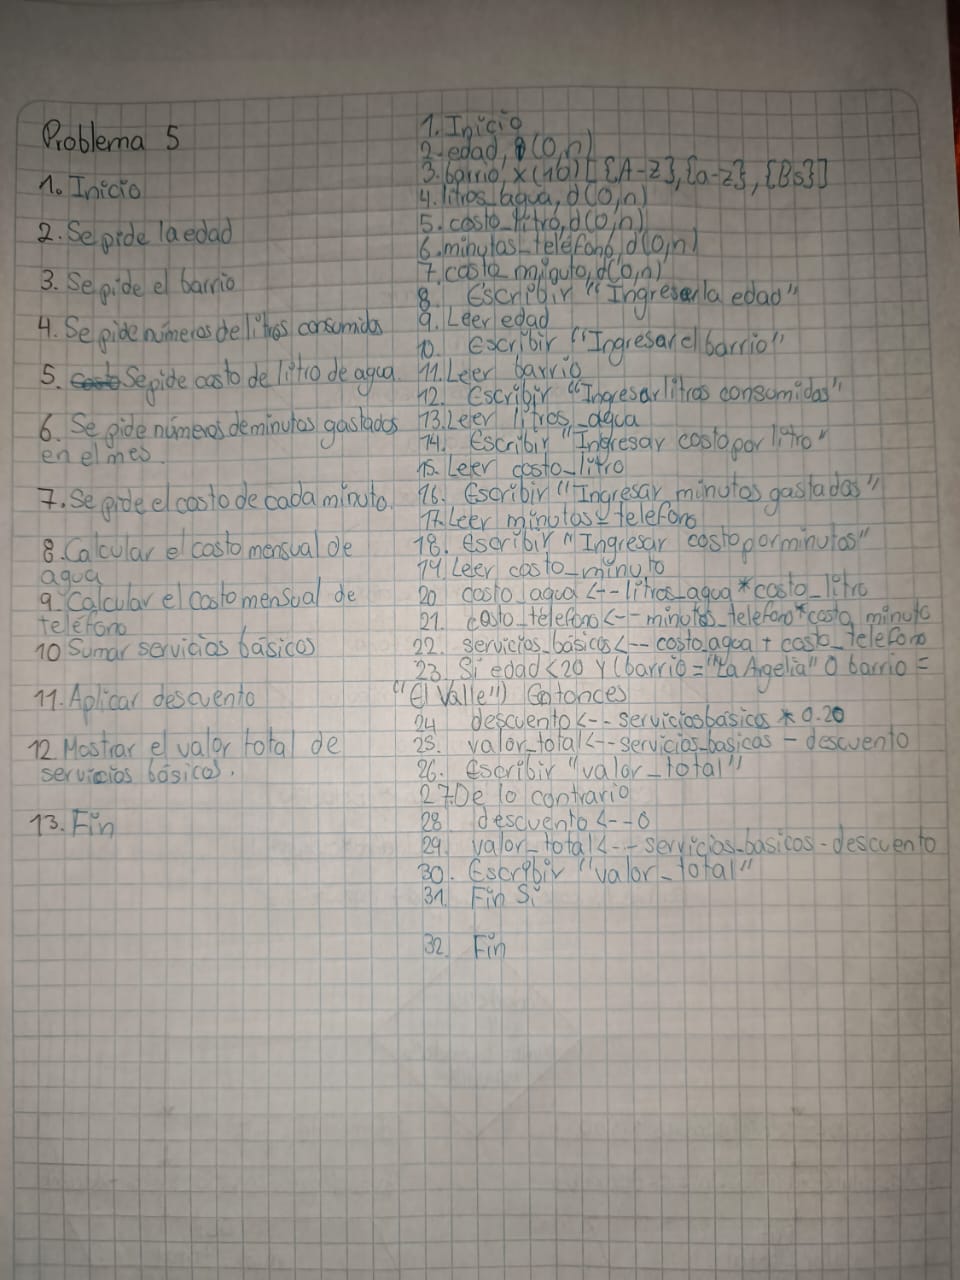 Problema 5
1. Inicio
2. Se pide la edad
3. Se pide el barrio
4. Se pide números de litros consumidos
5. Se pide costo de litro de agua
6. Se pide números de minutos gastados
en el mes.
7. Se pide el costo de cada minuto.
8. Calcular el costo mensual de
agua
9. Calcular el costo mensual de
teléfono
10 Sumar servicios básicos
11. Aplicar descuento
12 Mostrar el valor total de
servicios básicos.
13. Fin
1. Inicio
2. edad, (0,n)
3. barrio, x(16) [{A-Z},{a-z},{Bs}]
4. litros_agua, d(0,n)
5. costo_litro, d(0,n)
6. minutos_teléfono, d(0,n)
7. costo_minuto, d(0,n)
8. Escribir "Ingresar la edad"
9. Leer edad
10. Escribir "Ingresar el barrio"
11. Leer barrio
12. Escribir "Ingresar litros consumidos"
13. Leer litros_agua
14. Escribir "Ingresar costo por litro"
15. Leer costo_litro
16. Escribir "Ingresar minutos gastados"
17. Leer minutos_telefono
18. escribir "Ingresar costo por minutos"
19. Leer costo_minuto
20 costo_agua <-- litros_agua * costo_litro
21. costo_telefono <-- minutos_telefono * costo_minuto
22. servicios_básicos <-- costo_agua + costo_telefono
23. Si edad < 20 Y (barrio = "La Argelia" O barrio =
"El Valle") Entonces
24 descuento <-- servicios basicos * 0.20
25. valor_total <-- servicios_basicos - descuento
26. Escribir "valor_total"
27. De lo contrario
28 descuento <--0
29. valor_total <-- servicios_basicos - descuento
30. Escribir "valor_total"
31. Fin Si
32. Fin